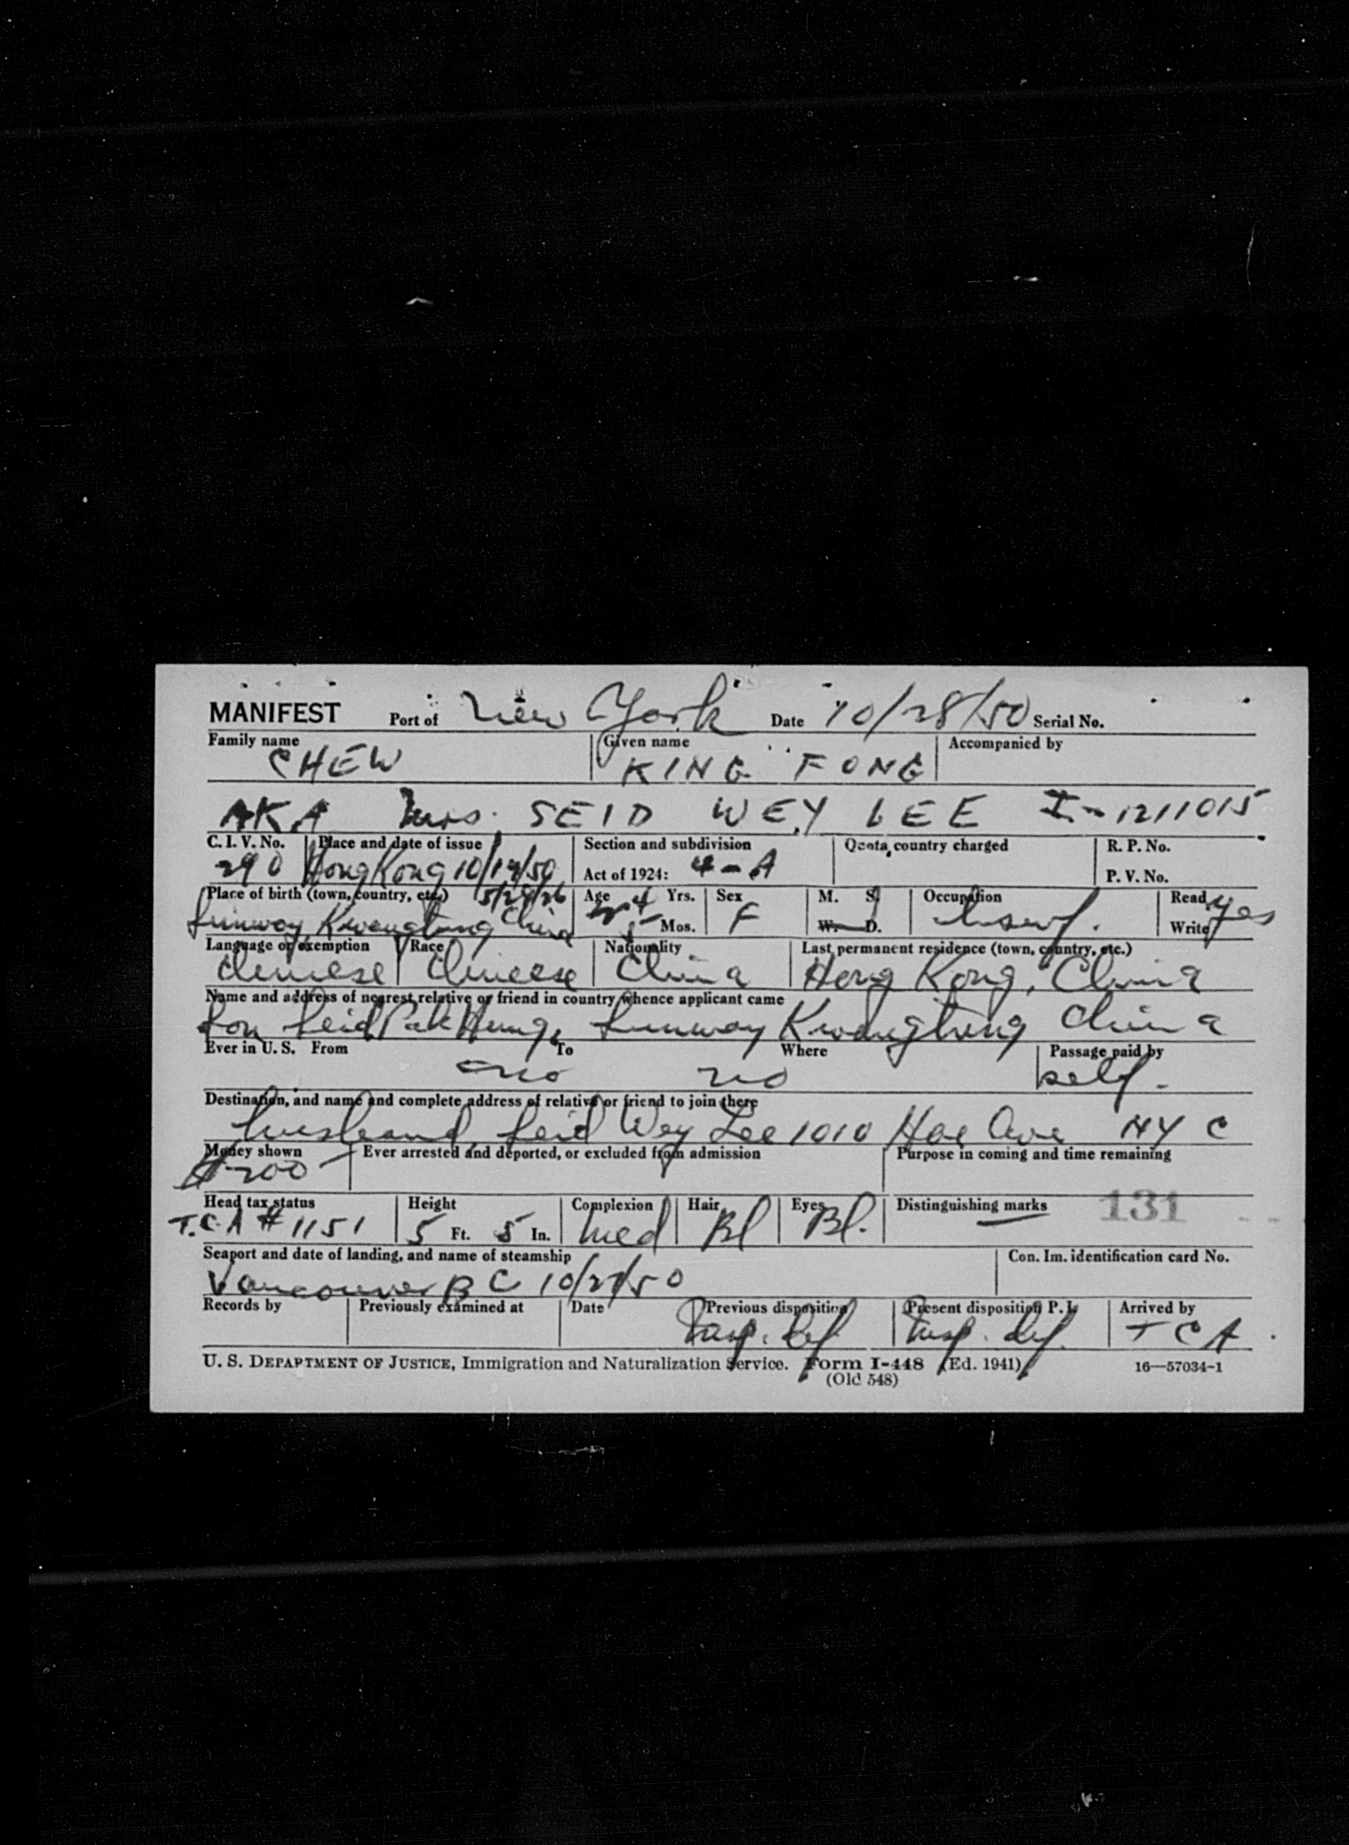 MANIFEST Port of New York Date 10/28/50 Serial No.
Family name Given name Accompanied by
CHEW KING FONG
AKA Mrs. SEID WEY LEE I-1211015
C. I. V. No. Place and date of issue Section and subdivision Quota country charged R. P. No.
290 Hong Kong 10/19/50 Act of 1924: 4-A P. V. No.
Place of birth (town, country, etc.) 5/28/26 Age 24 Yrs. Sex M. S. Occupation Read yes
Sunwoy, Kwangtung China 5 Mos. F W. D. hswf. Write
Language or exemption Race Nationality Last permanent residence (town, country, etc.)
Chinese Chinese China Hong Kong, China
Name and address of nearest relative or friend in country whence applicant came
Son Seid Pak Hung, Sunwoy Kwangtung China
Ever in U. S. From To Where Passage paid by
no no self.
Destination, and name and complete address of relative or friend to join there
husband, Seid Wey Lee 1010 Hoe Ave NYC
Money shown Ever arrested and deported, or excluded from admission Purpose in coming and time remaining
$200
Head tax status Height Complexion Hair Eyes Distinguishing marks 131
T.C.A # 1151 5 Ft. 5 In. Med Bl Bl.
Seaport and date of landing, and name of steamship Con. Im. identification card No.
Vancouver BC 10/27/50
Records by Previously examined at Date Previous disposition Present disposition P. I. Arrived by
Insp. def. Insp. def. TCA
U. S. DEPARTMENT OF JUSTICE, Immigration and Naturalization Service. Form I-448 (Ed. 1941) 16—57034-1
(Old 548)